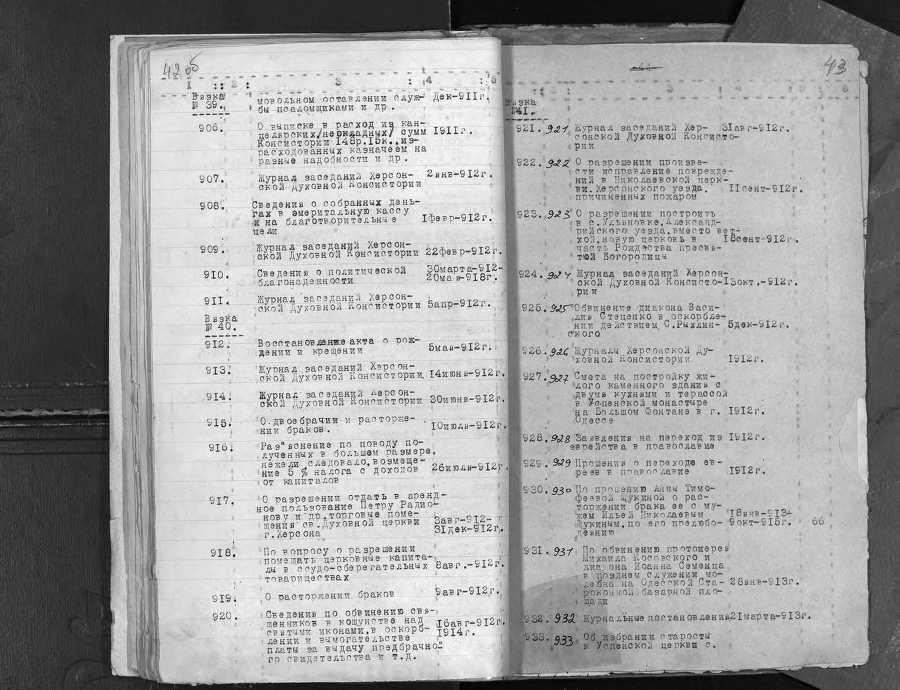 42 об
1 : 2 : 3 : 4 : 5
Вязка
№ 39.
мовольном оставлении служ- Дек-911г.
бы псаломщиками и др.
906. О выписке в расход из кан-
целярских/неокладных/ сумм 1911г.
Консистории 148р.15к., из-
расходованных казначеем на
разные надобности и др.
907. Журнал заседаний Херсон- 2янв-912г.
ской Духовной Консистории
908. Сведения о собранных день-
гах в эмеритальную кассу
и на благотворительные 1февр-912г.
цели
909. Журнал заседаний Херсон-
ской Духовной Консистории 22февр-912г.
910. Сведения о политической 30марта-912-
благонадежности 20мая-918г.
911. Журнал заседаний Херсон-
ской Духовной Консистории 5апр-912г.
Вязка
№ 40.
912. Восстановление акта о рож-
дении и крещении 5мая-912г.
913. Журнал заседаний Херсон-
ской Духовной Консистории 14июня-912г.
914. Журнал заседаний Херсон-
ской Духовной Консистории 30июня-912г.
915. О двоебрачии и расторже-
нии браков. 10июля-912г.
916. Раз"яснение по поводу по-
лученных в большем размере,
нежели следовало, возмеще-
ние 5 % налога с доходов 26июля-912г.
от капиталов
917. О разрешении отдать в аренд-
ное пользование Петру Радио-
нову и др. торговые поме-
щения св. Духовной церкви 3авг-912-
г.Херсона 31дек-912г.
918. По вопросу о разрешении
помещать церковные капита-
лы в ссудо-сберегательных 8авг.-912г.
товариществах
919. О расторжении браков 9авг-912г.
920. Сведения по обвинению свя-
щенников в кощунстве над 16авг-912г.
святыми иконами, в оскорб- 1914г.
лении и вымогательстве
платы за выдачу предбрачно-
го свидетельства и т.д.
43
Вязка
№41.
921. 921 Журнал заседаний Хер- 31авг-912г.
сонской Духовной Консисто-
рии
922. 922 О разрешении произве-
сти исправление поврежде-
ний в Николаевской церк-
ви, Херсонского уезда, 11сент-912г.
причиненных пожаром
923. 923 О разрешении построить
в с. Ульяновке, Александ-
рийского уезда, вместо вет-
хой, новую церковь в 18сент-912г.
честь Рождества пресвя-
той Богородицы
924. 924 Журнал заседаний Херсон-
ской Духовной Консисто- 13окт.-912г.
рии
925. 925 Обвинение диакона Васи-
лия Стеценко в оскорбле-
нии действием С.Рыхлин- 5дек-912г.
ского
926. 926 Журналы Херсонской Ду-
ховной Консистории 1912г.
927. 927 Смета на постройку жи-
лого каменного здания с
двумя кухнями и терассой
в Успенском монастыре
на Большом Фонтане в г. 1912г.
Одессе
928. 928 Заявления на переход из 1912г.
еврейства в православие
929. 929 Прошения о переходе ев-
реев в православие 1912г.
930. 930 По прошению Анны Тимо-
феевой Щукиной о рас-
торжении брака ее с му-
жем Ильей Николаевым 18янв-913-
Щукиным, по его прелюбо- 9окт-915г. 66
деянию
931. 931 По обвинению протоиерея
Михаила Косовского и
диакона Иоанна Семенца
в позднем служении мо-
лебна на Одесской Ста- 28янв-913г.
роконной базарной пло-
щади
932. 932 Журнальные постановления 21марта-913г.
933. 933 Об избрании старосты
к Успенской церкви с.